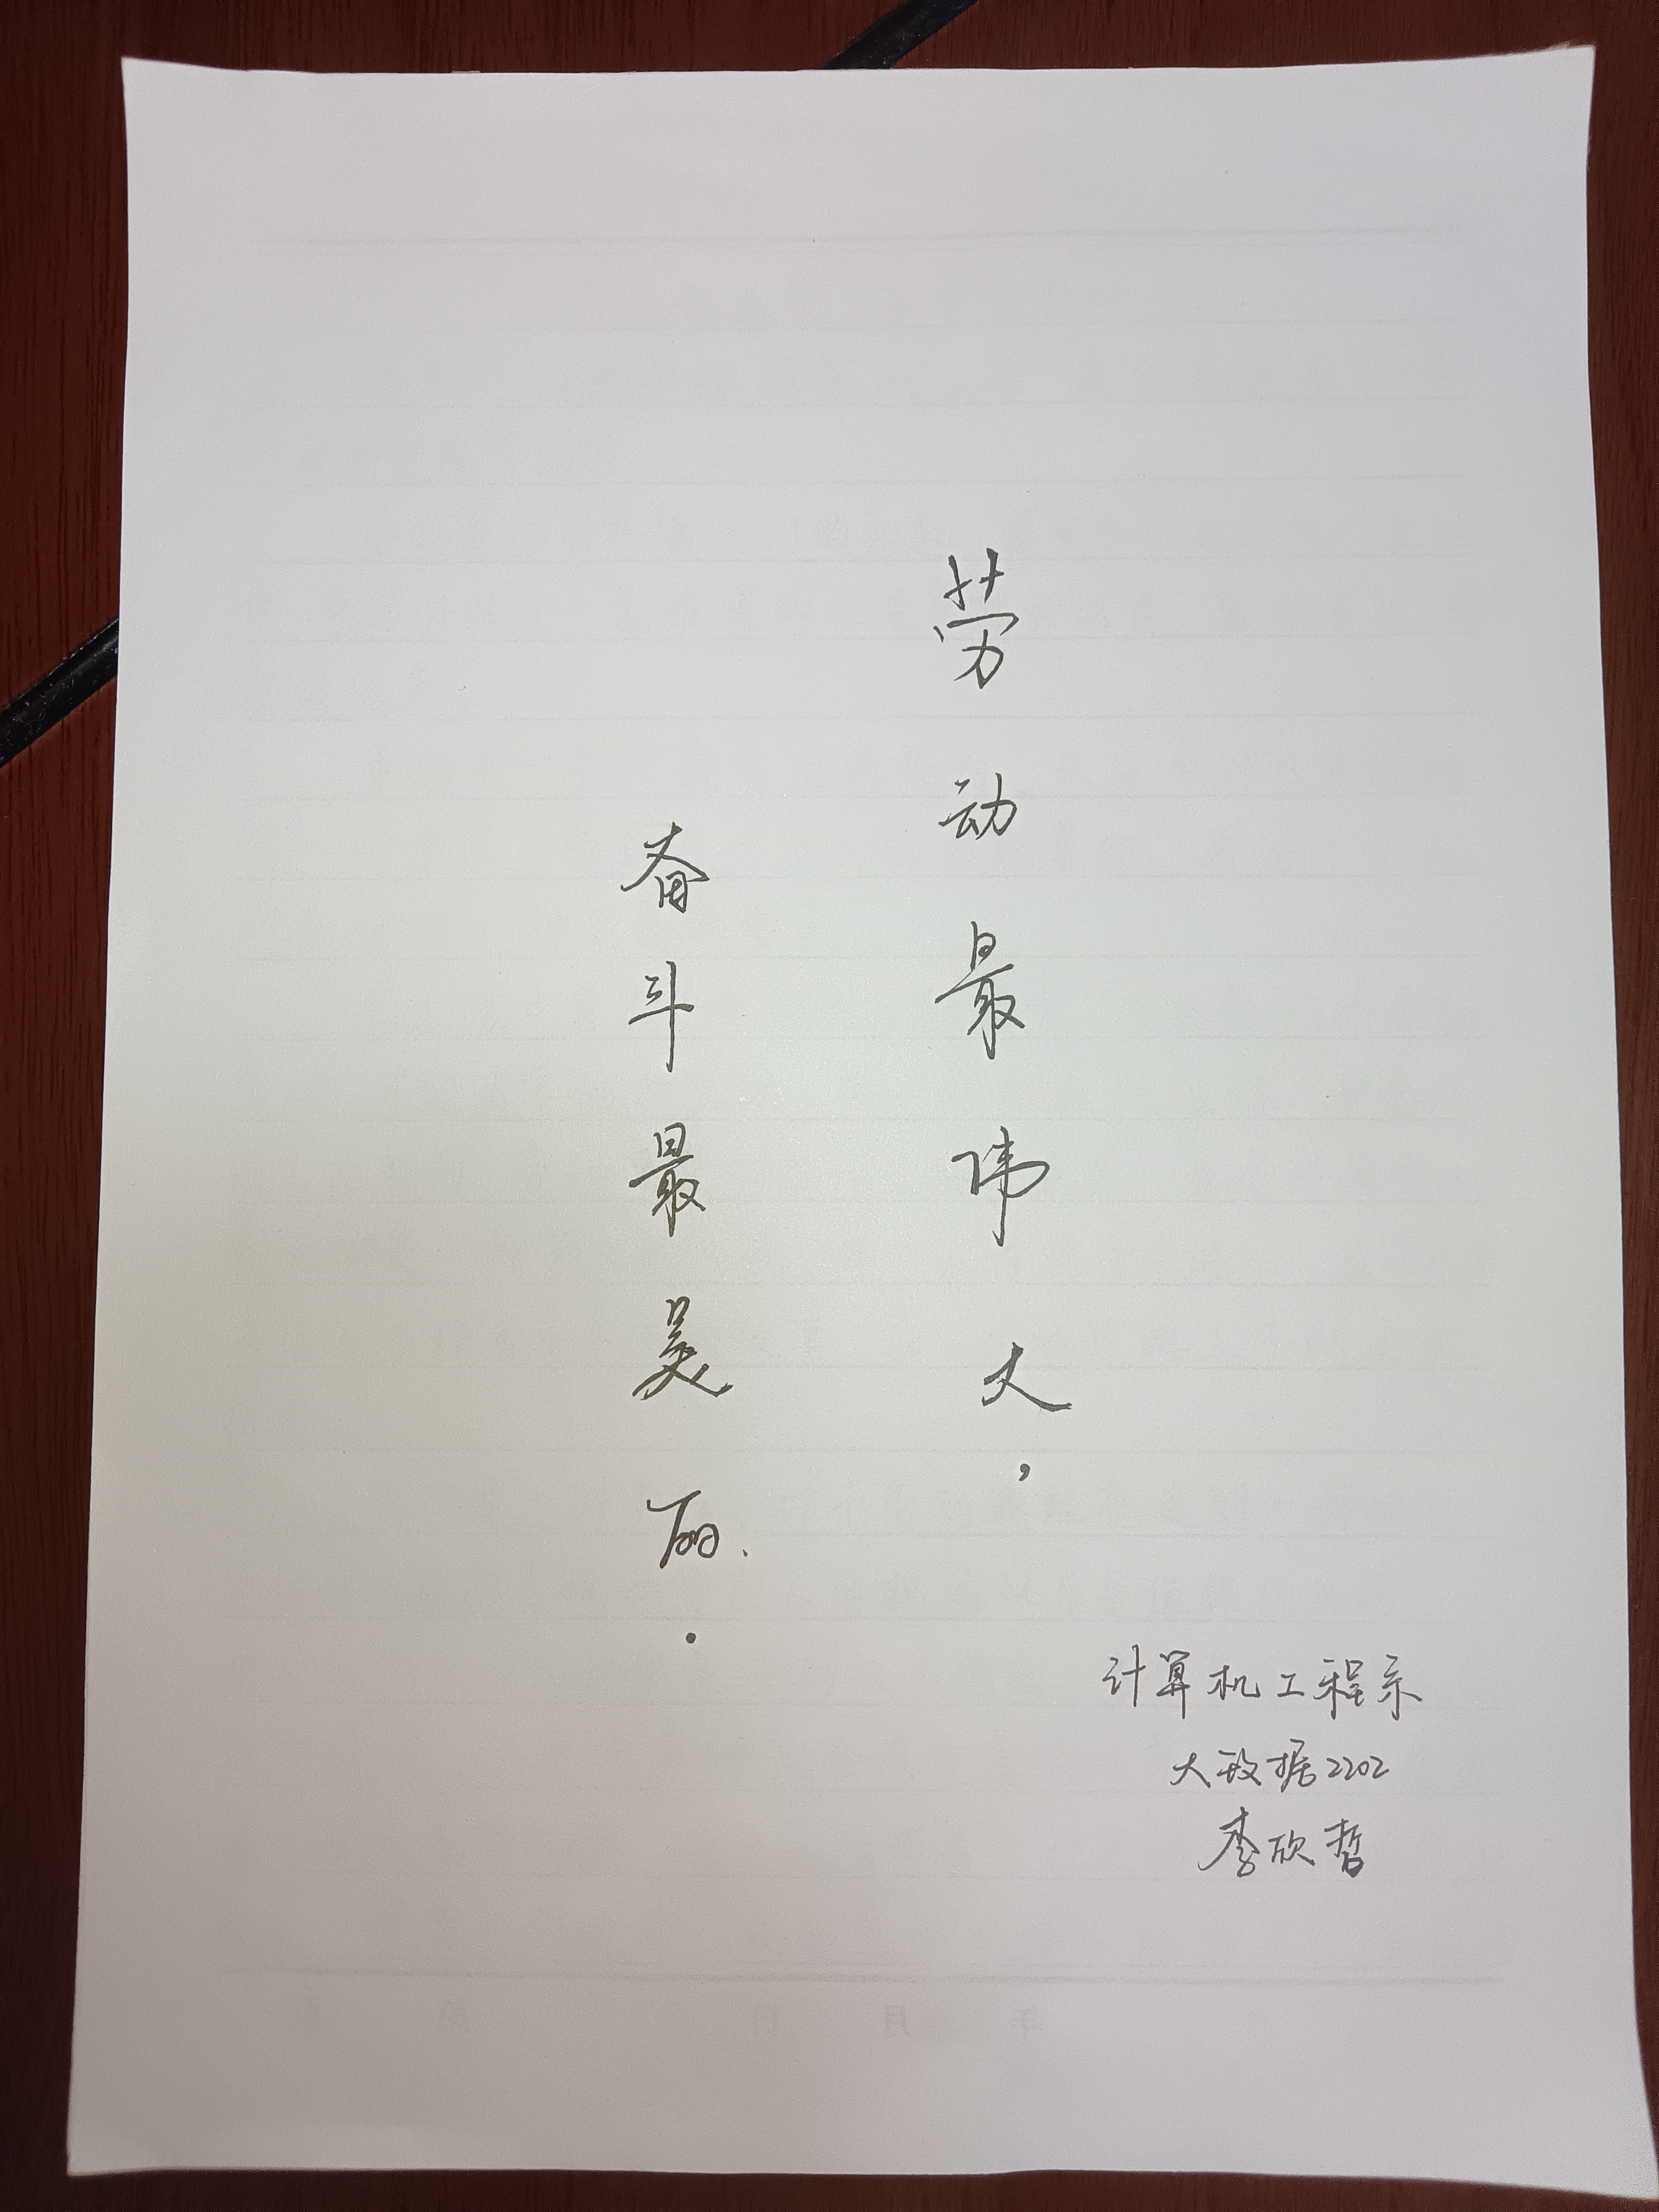 劳动最伟大，
奋斗最美丽.
计算机工程系
大数据2202
李欣哲